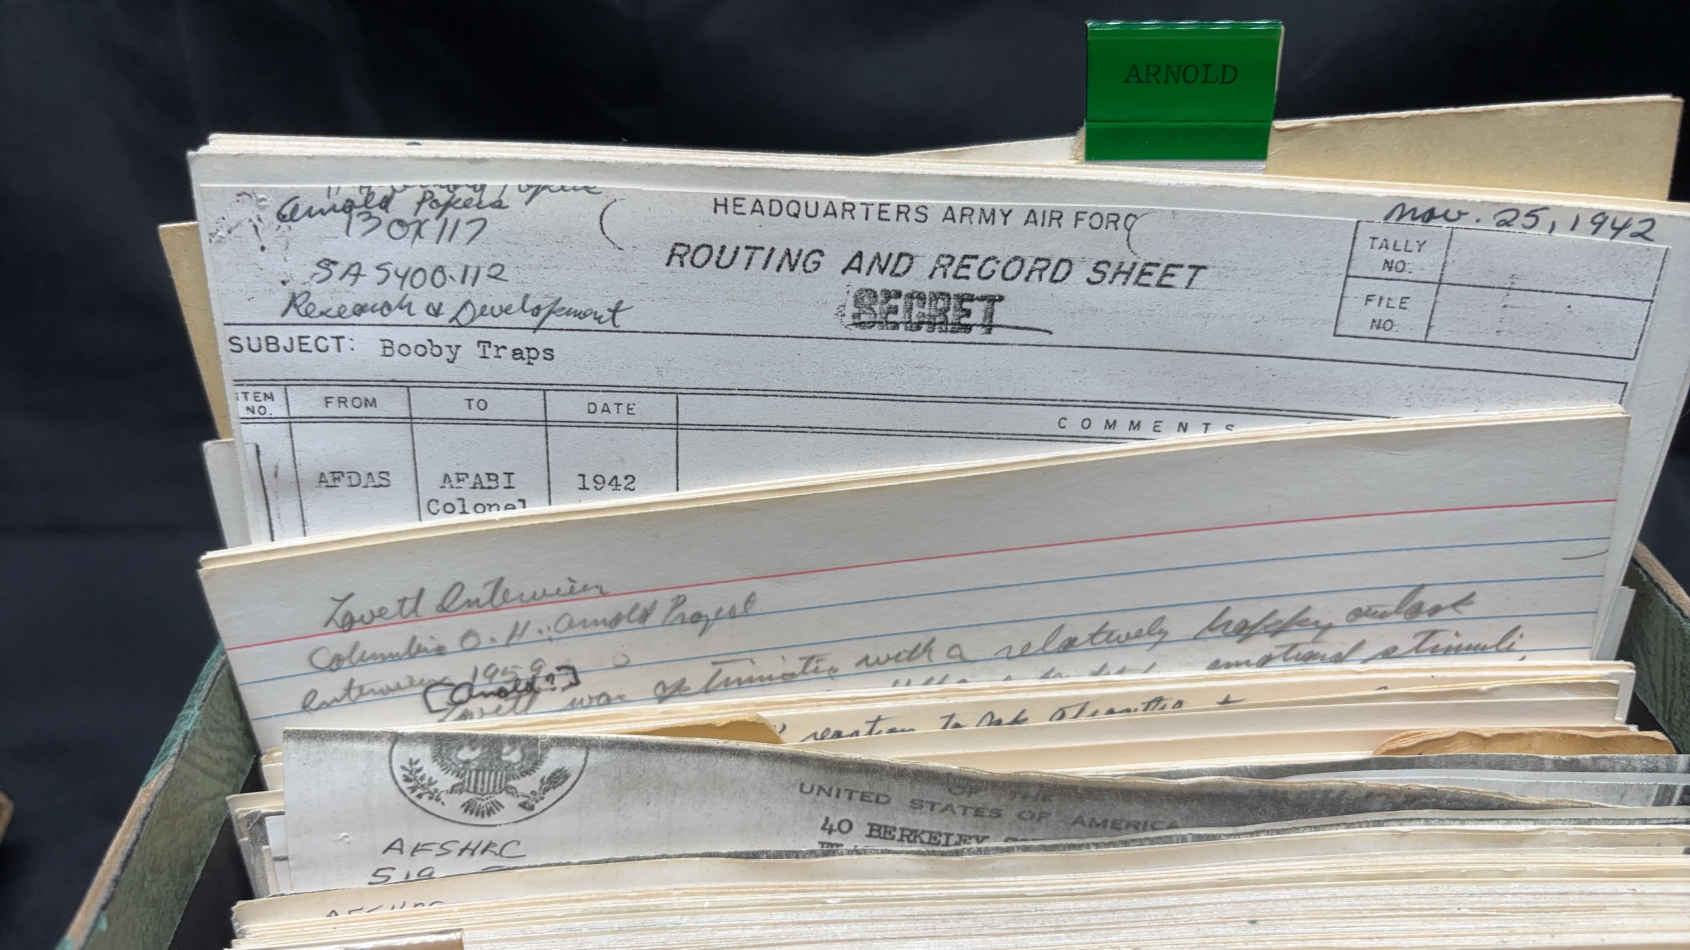 ARNOLD
Arnold Papers
BOX 117
SAS 400.112
Research & Development
HEADQUARTERS ARMY AIR FORC
ROUTING AND RECORD SHEET
SECRET
Nov. 25, 1942
TALLY
NO.
FILE
NO.
SUBJECT: Booby Traps
ITEM
NO.
FROM
TO
DATE
COMMENTS
AFDAS
AFABI
1942
Colonel
Lovett Interview
Columbia O.H., Arnold Project
Interview 1959
[Arnold?]
Lovett was optimistic with a relatively happy outlook
emotional stimuli,
reaction to
OF THE
UNITED STATES OF AMERICA
40 BERKELEY
AFSHRC
519
AFSHRC